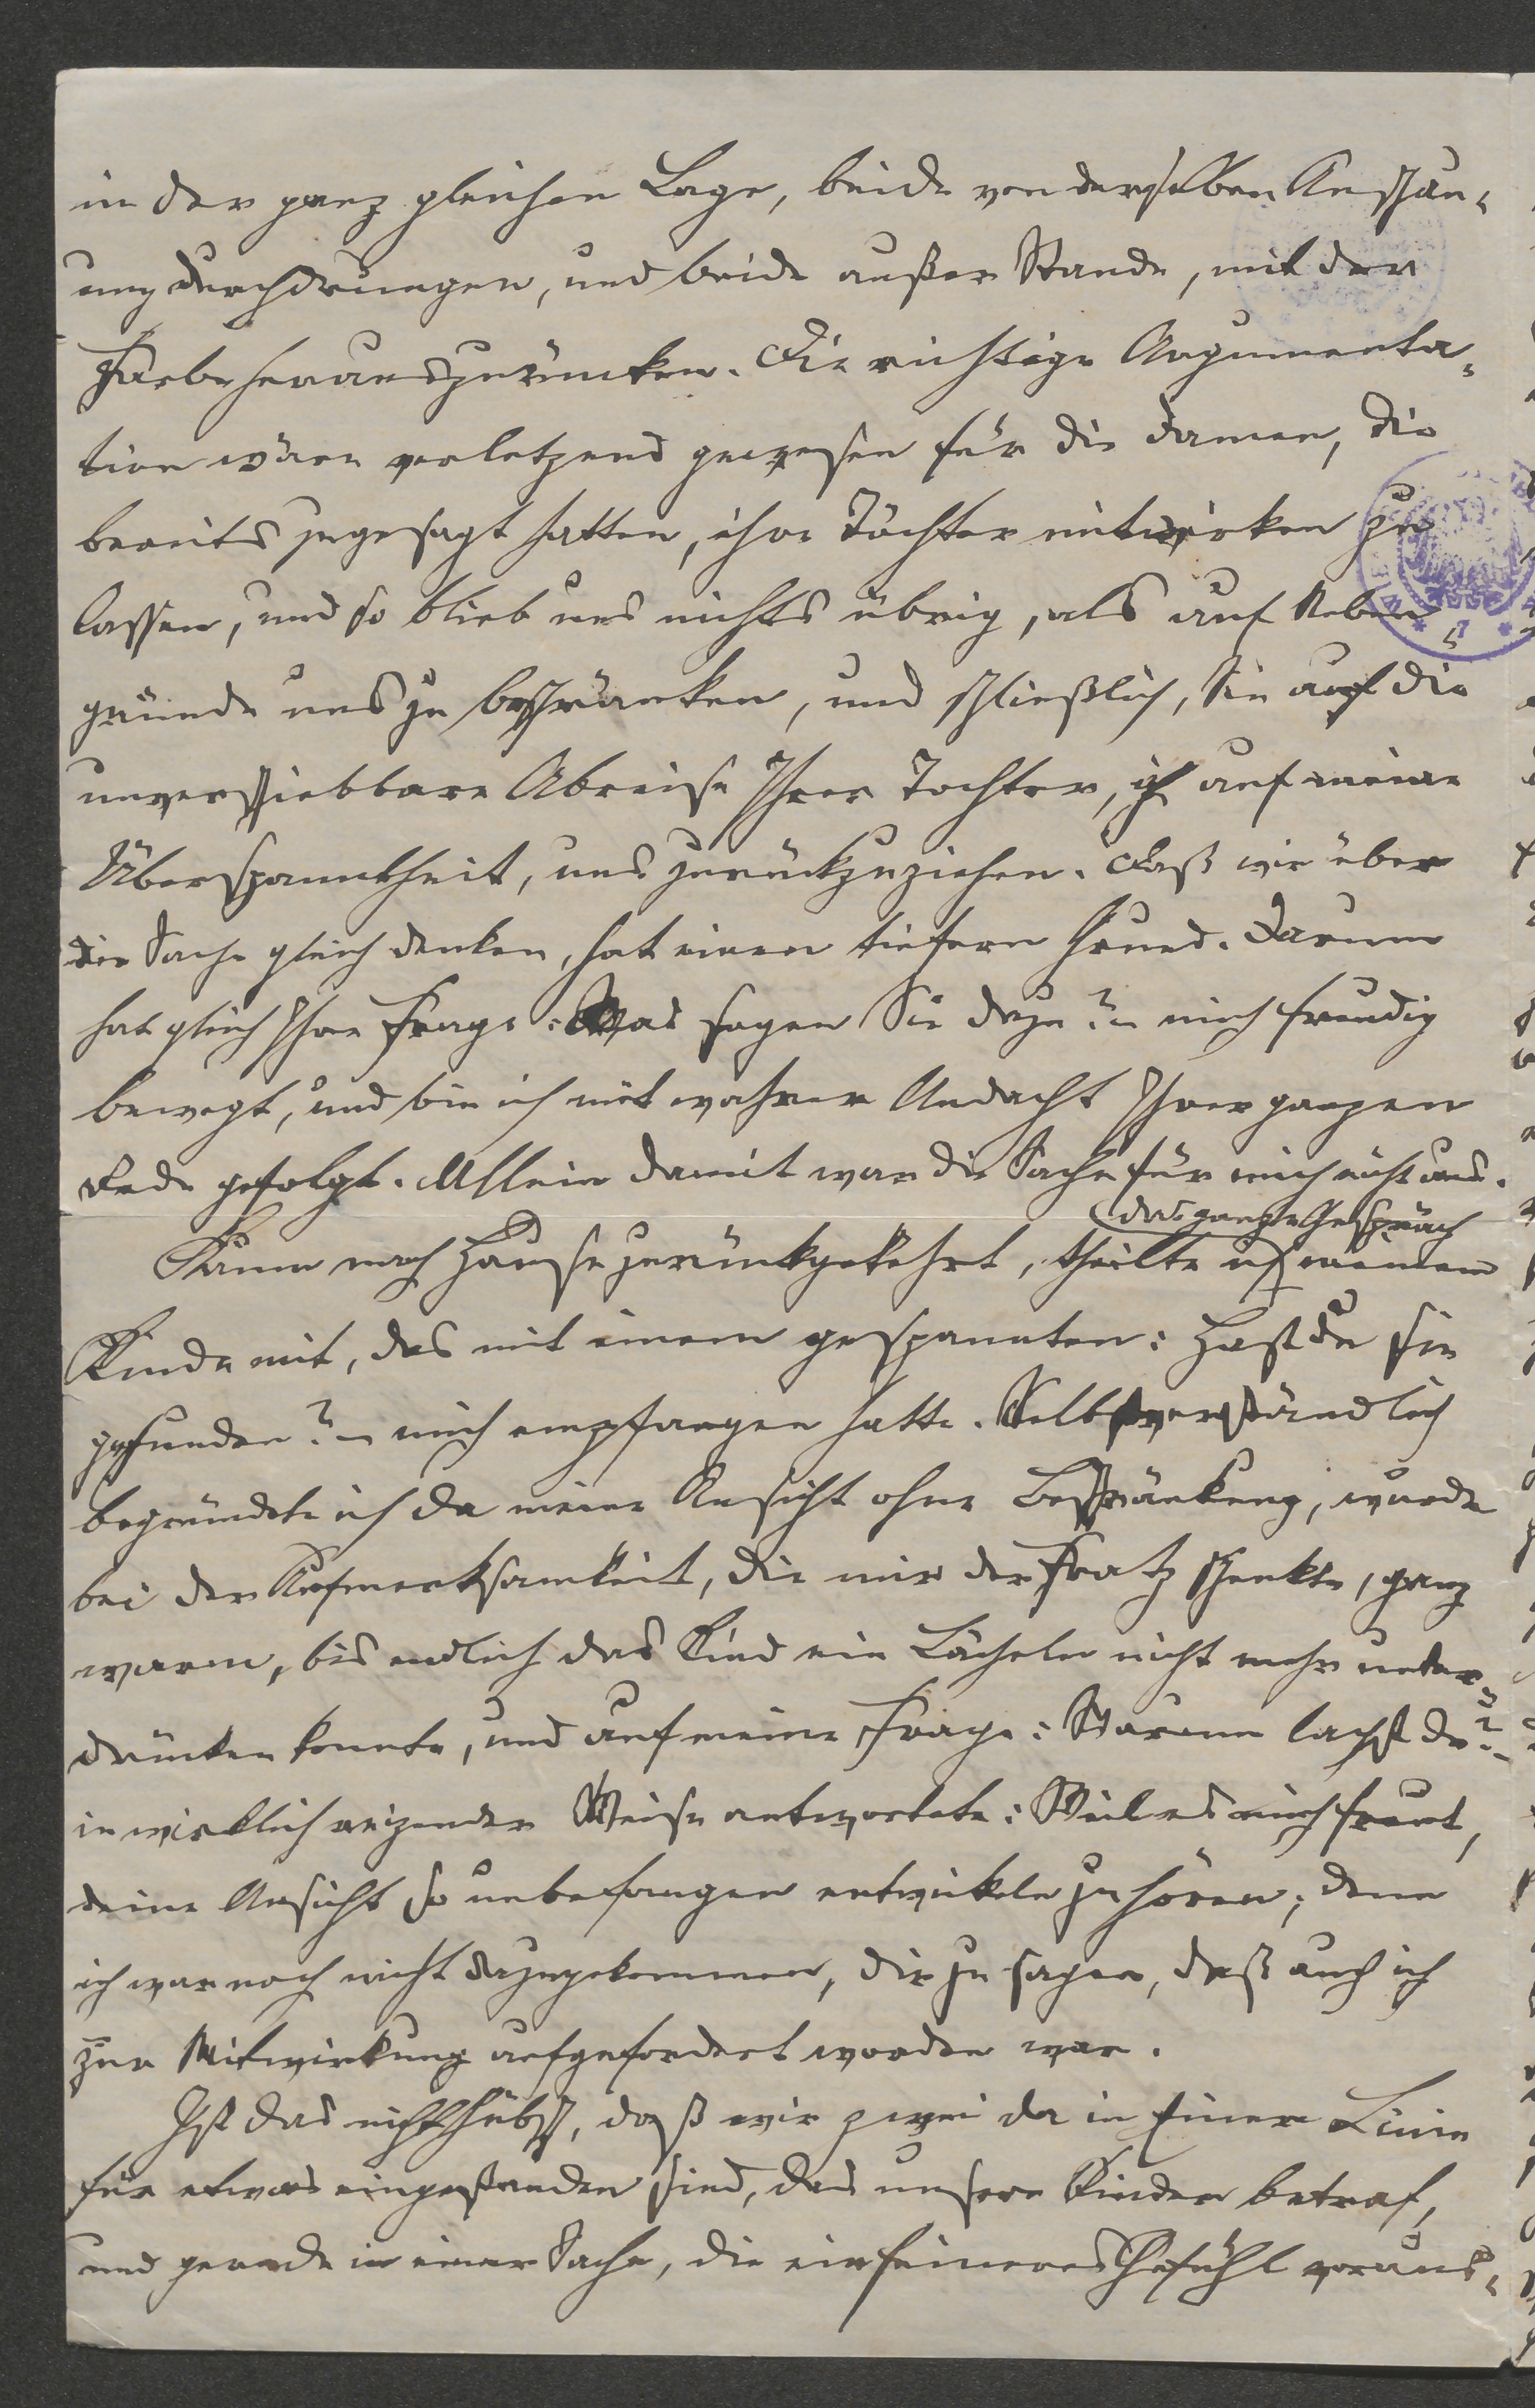 in der ganz gleichen Lage, beide von derselben Anschau-
ung durchdrungen, und beide außer Stande, mit der
Farbe herauszurücken. Die richtige Argumenta-
tion wäre verletzend gewesen für die Damen, die
bereits zugesagt hatten, ihre Töchter mitwirken zu
lassen, und so blieb uns nichts übrig, als auf Neben-
gründe uns zu beschränken, und schließlich, Sie auf die
unverschiebbare Abreise Ihrer Tochter, ich auf meine
Überspanntheit, uns zurückzuziehen. Daß wir über
die Sache gleich denken, hat einen tiefern Grund. Darum
hat gleich Ihre Frage: Was sagen Sie dazu? – mich freudig
bewegt, und bin ich mit wahrer Andacht Ihrer ganzen
Rede gefolgt. Allein damit war die Sache für mich nicht aus.
das ganze Gespräch
Kaum nach Hause zurückgekehrt, theilte ich meinem
Kinde mit, das mit einem gespannten: Hast du sie
gefunden? – mich empfangen hatte. Selbstverständlich
begründete ich da meine Ansicht ohne Beschränkung, wurde
bei der Aufmerksamkeit, die mir der Fratz schenkte, ganz
warm, bis endlich das Kind ein Lächeln nicht mehr unter-
drücken konnte, und auf meine Frage: Warum lachst du? –
in wirklich reizender Weise antwortete: Weil es mich freut,
deine Ansicht so unbefangen entwickeln zu hören; denn
ich war noch nicht dazugekommen, dir zu sagen, daß auch ich
zur Mitwirkung aufgefordert worden war.
Ist das nicht hübsch, daß wir zwei da in Einer Linie
für etwas eingestanden sind, das unsere Kinder betraf,
und gerade in einer Sache, die ein feineres Gefühl voraus-